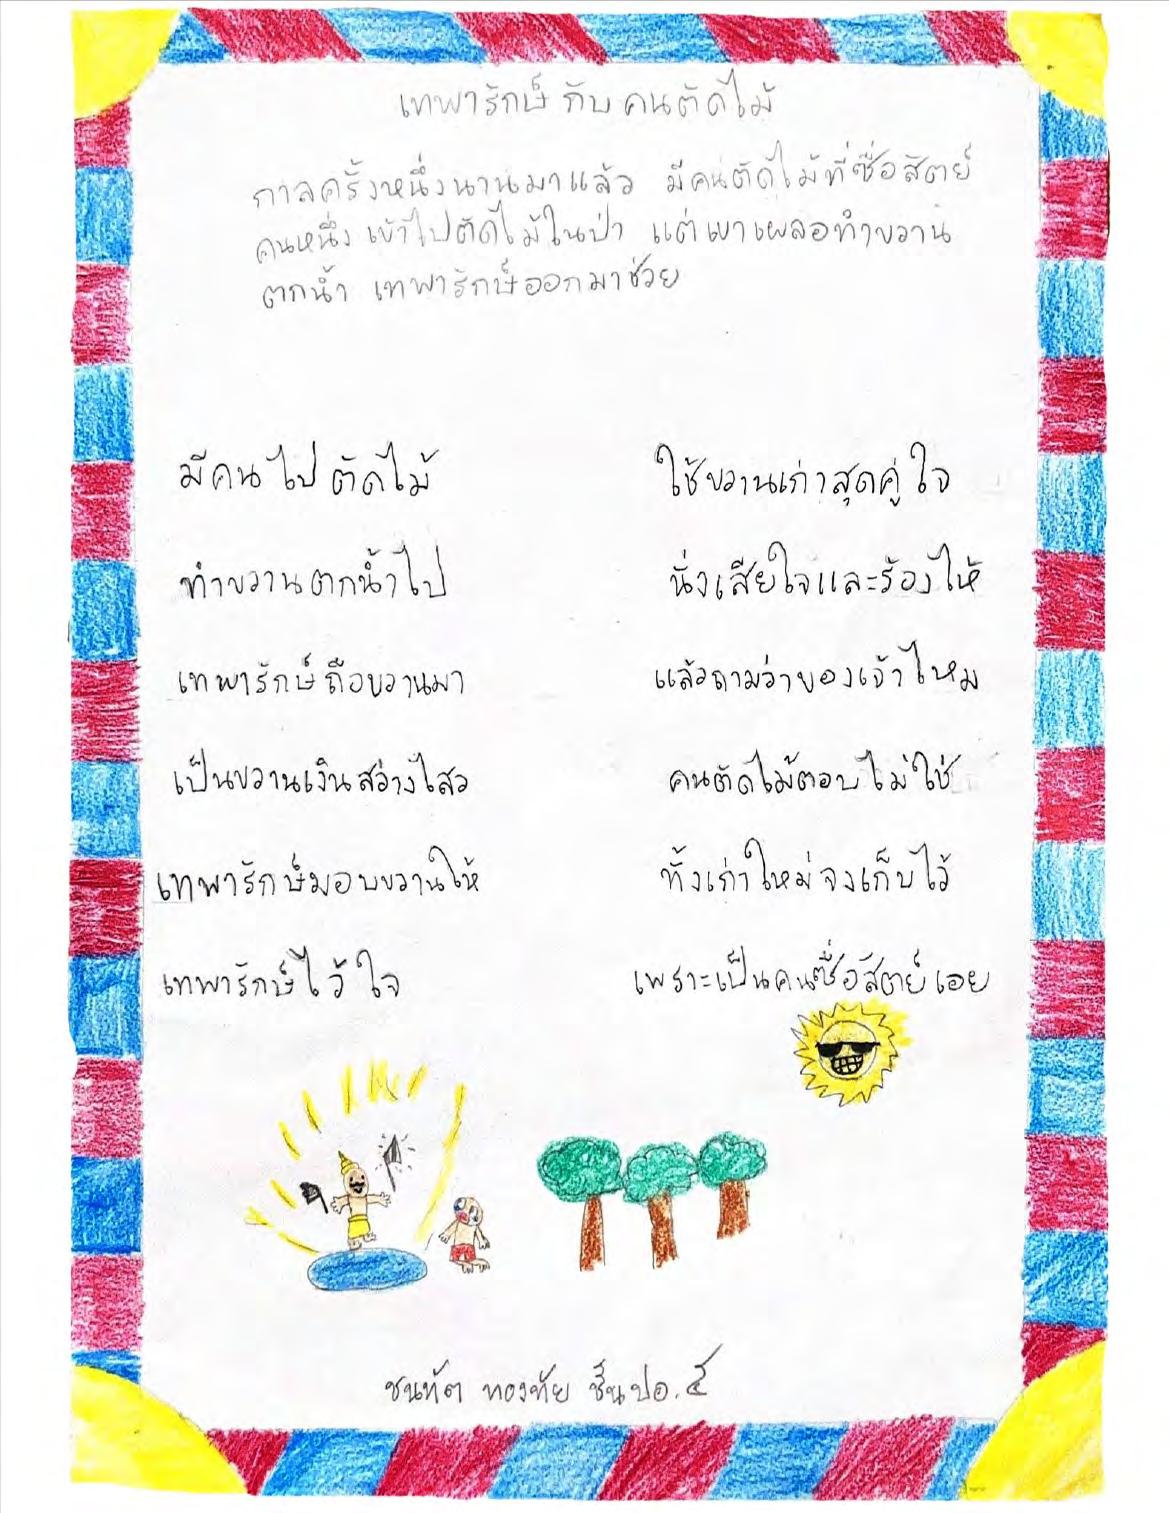 เทพารักษ์ กับ คนตัดไม้
กาลครั้งหนึ่งนานมาแล้ว มีคนตัดไม้ที่ซื่อสัตย์
คนหนึ่ง เข้าไปตัดไม้ในป่า แต่เขาเผลอทำขวาน
ตกน้ำ เทพารักษ์ออกมาช่วย
มีคนไปตัดไม้ ใช้ขวานเก่าสุดคู่ใจ
ทำขวานตกน้ำไป นั่งเสียใจและร้องไห้
เทพารักษ์ถือขวานมา แล้วถามว่าของเจ้าไหม
เป็นขวานเงินสว่างไสว คนตัดไม้ตอบไม่ใช่
เทพารักษ์มอบขวานให้ ทั้งเก่าใหม่จงเก็บไว้
เทพารักษ์ไว้ใจ เพราะเป็นคนซื่อสัตย์เอย
ชนทัต ทองทัย ชั้น ปอ.๕